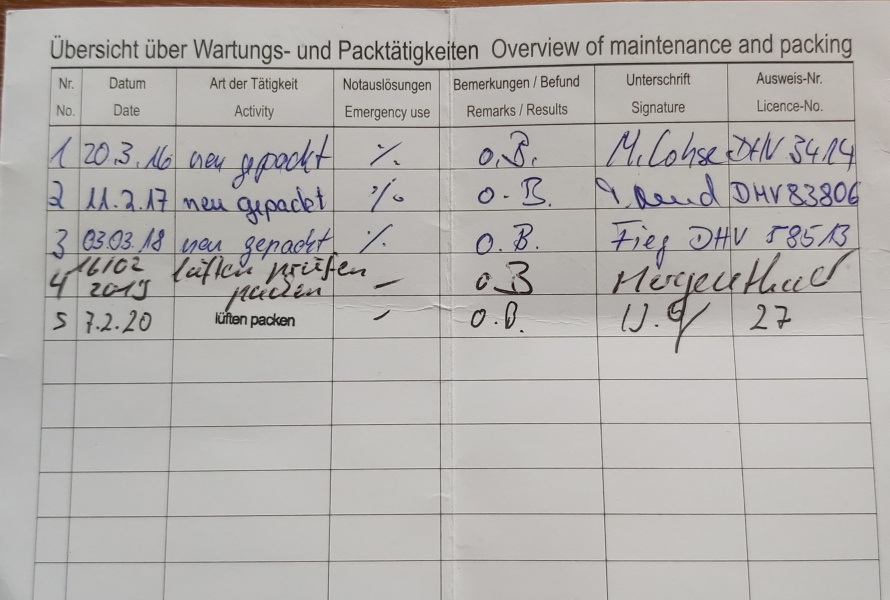 Übersicht über Wartungs- und Packtätigkeiten Overview of maintenance and packing
Nr. Datum Art der Tätigkeit Notauslösungen Bemerkungen / Befund Unterschrift Ausweis-Nr.
No. Date Activity Emergency use Remarks / Results Signature Licence-No.
1 20.3.16 neu gepackt %. o.B. DHV 3414
2 11.2.17 neu gepackt % o.B. DHV 83806
3 03.03.18 neu gepackt %. o.B. Fieg DHV 58513
4 16/02 lüften prüfen
2019 packen – o.B Mergenthal
5 7.2.20 lüften packen – o.B. 27